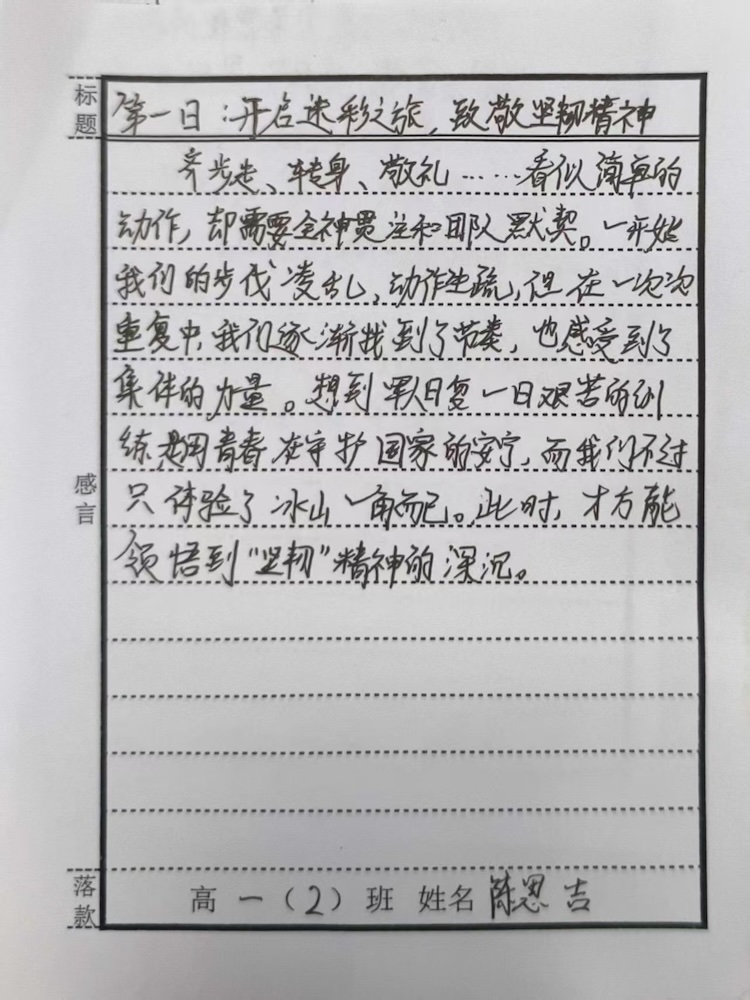 标题
第一日：开启迷彩之旅，致敬坚韧精神
齐步走、转身、敬礼……看似简单的
动作，却需要全神贯注和团队默契。一开始
我们的步伐凌乱、动作生疏，但在一次次
重复中，我们逐渐找到了节奏，也感受到了
集体的力量。想到军人日复一日艰苦的训
练，用青春在守护国家的安宁，而我们不过
只体验了冰山一角而已。此时，才方能
领悟到“坚韧”精神的深沉。
感言
落款
高一（2）班 姓名 陈恩吉